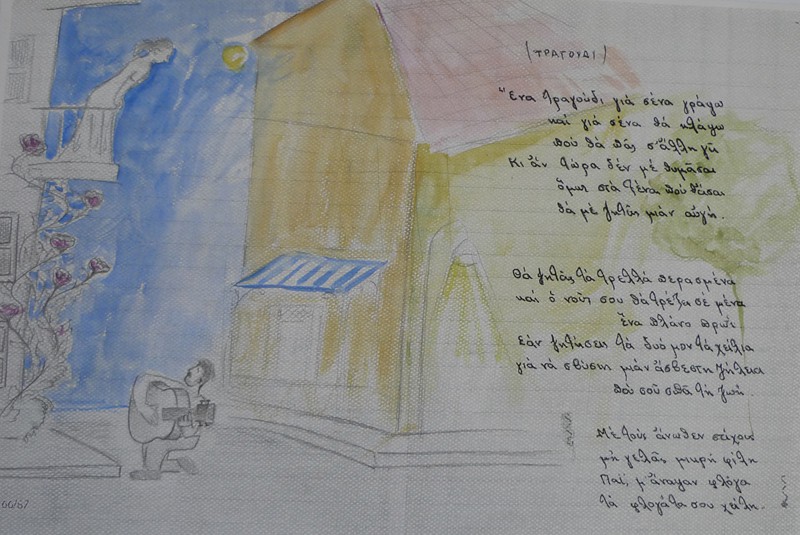 (ΤΡΑΓΟΥΔΙ)
Ἕνα τραγούδι γιά σένα γράφω
καί γιά σένα θά κλάψω
πού θά πᾶς σ' ἄλλη γῆ
Κι ἄν τώρα δέν μέ θυμᾶσαι
ὅμως στά ξένα πού θἆσαι
θά μέ ζητᾶς μιάν αὐγή.
Θά ζητᾶς τά τρελλά περασμένα
καί ὁ νοῦς σου θά τρέξει σέ μένα
ἕνα πλάνο πρωΐ
Ἐάν ζητήσεις τά δυό μου τά χείλια
γιά νά σβύσῃς μιάν ἄσβεστη ζήλεια
πού σοῦ σπᾶ τή ζωή.
Μέ τούς ἄνωθεν στίχους
μή γελᾶς μικρή φίλη
μ' ἄναψαν φλόγα
τά φλογάτα σου χείλη.
66/67